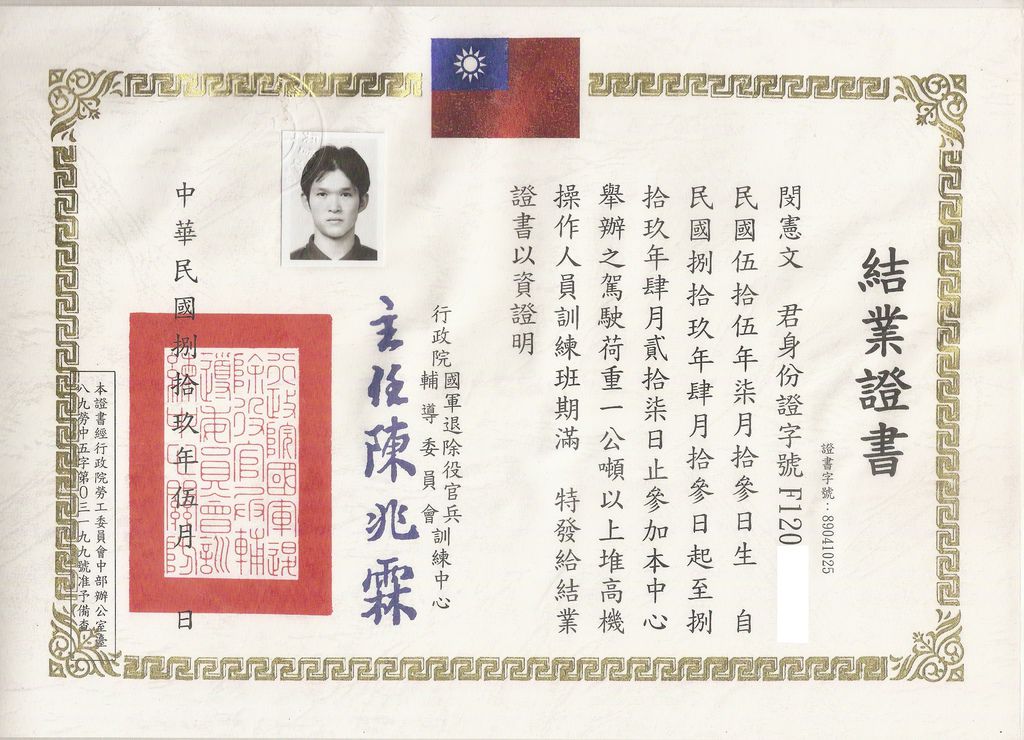 結業證書
證書字號：89041025
閔憲文　君身份證字號 F120
民國伍拾伍年柒月拾參日生　自
民國捌拾玖年肆月拾參日起至捌
拾玖年肆月貳拾柒日止參加本中心
舉辦之駕駛荷重一公噸以上堆高機
操作人員訓練班期滿　特發給結業
證書以資證明
行政院國軍退除役官兵輔導委員會訓練中心
主任陳兆霖
中華民國捌拾玖年伍月　日
本證書經行政院勞工委員會中部辦公室臺
八九勞中五字第0三一九九號准予備查